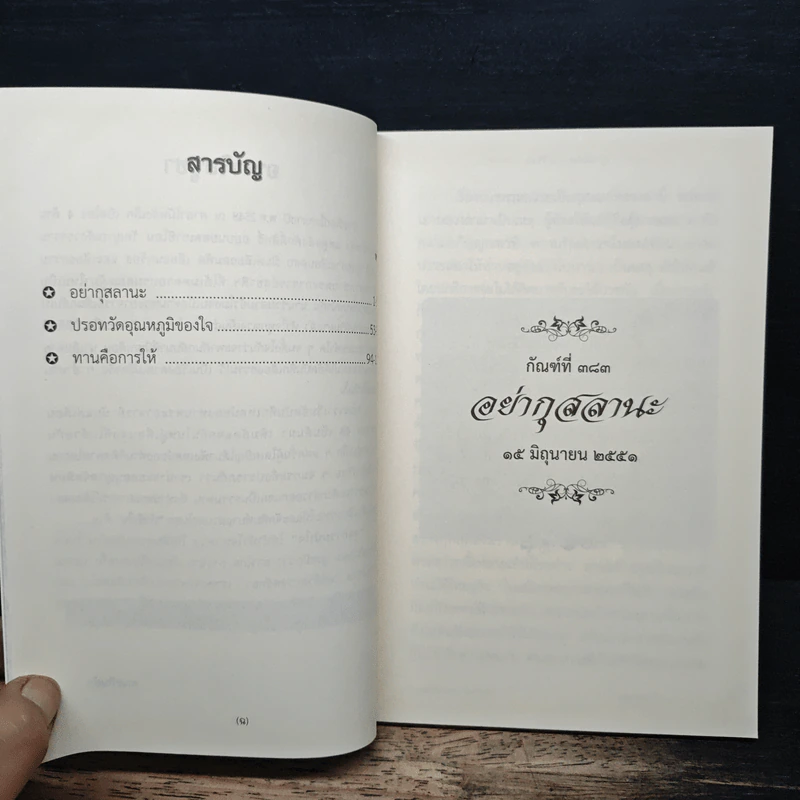 สารบัญ
✪ อย่ากุสลานะ ........................................ 1
✪ ปรอทวัดอุณหภูมิของใจ ........................................ 53
✪ ทานคือการให้ ........................................ 94
(ฉ)
กัณฑ์ที่ ๓๘๓
อย่ากุสลานะ
๑๕ มิถุนายน ๒๕๕๑